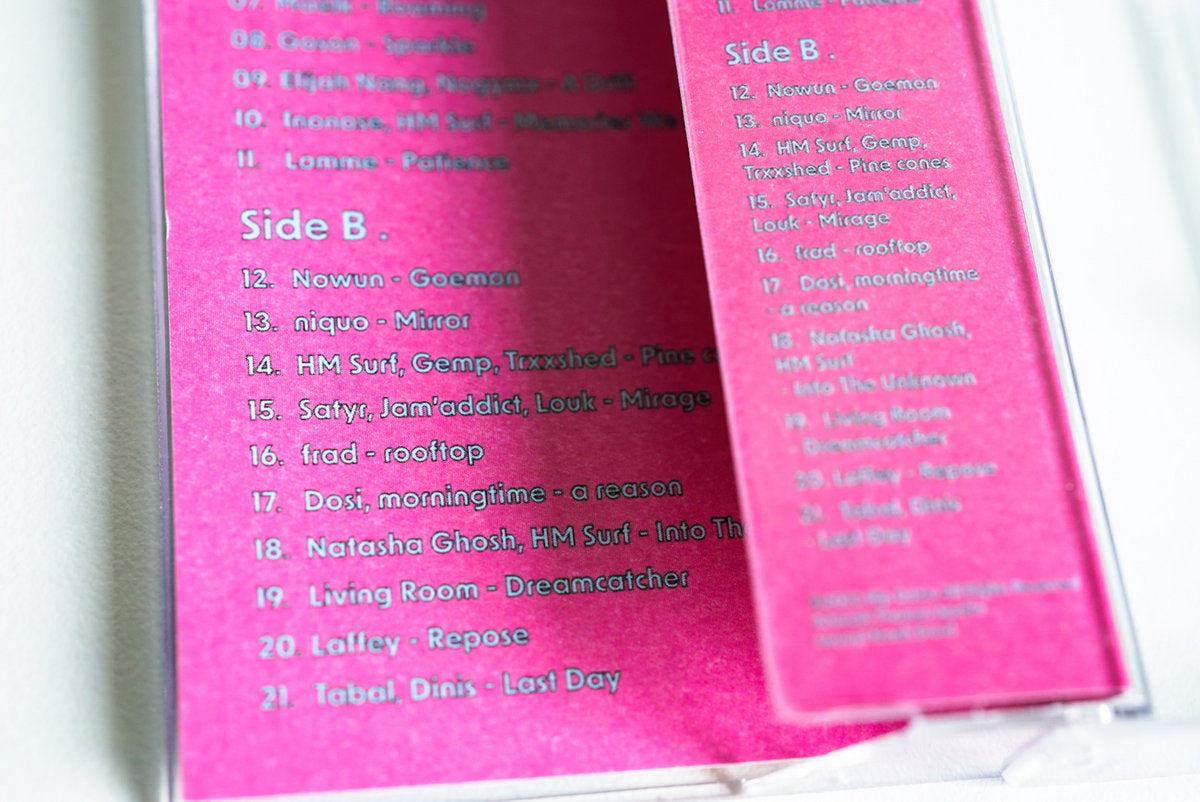 10. HM Surf -
11. Lomme - Patience
Side B .
12. Nowun - Goemon
13. niquo - Mirror
14. HM Surf, Gemp, Trxxshed - Pine
15. Satyr, Jam'addict, Louk - Mirage
16. frad - rooftop
17. Dosi, morningtime - a reason
18. Natasha Ghosh, HM Surf - Into The
19. Living Room - Dreamcatcher
20. Laffey - Repose
21. Tabal, Dinis - Last Day
11. Lomme - Patience
Side B .
12. Nowun - Goemon
13. niquo - Mirror
14. HM Surf, Gemp,
Trxxshed - Pine cones
15. Satyr, Jam'addict,
Louk - Mirage
16. frad - rooftop
17. Dosi, morningtime
- a reason
18. Natasha Ghosh,
HM Surf
- Into The Unknown
19. Living Room
- Dreamcatcher
20. Laffey - Repose
21. Tabal, Dinis
- Last Day